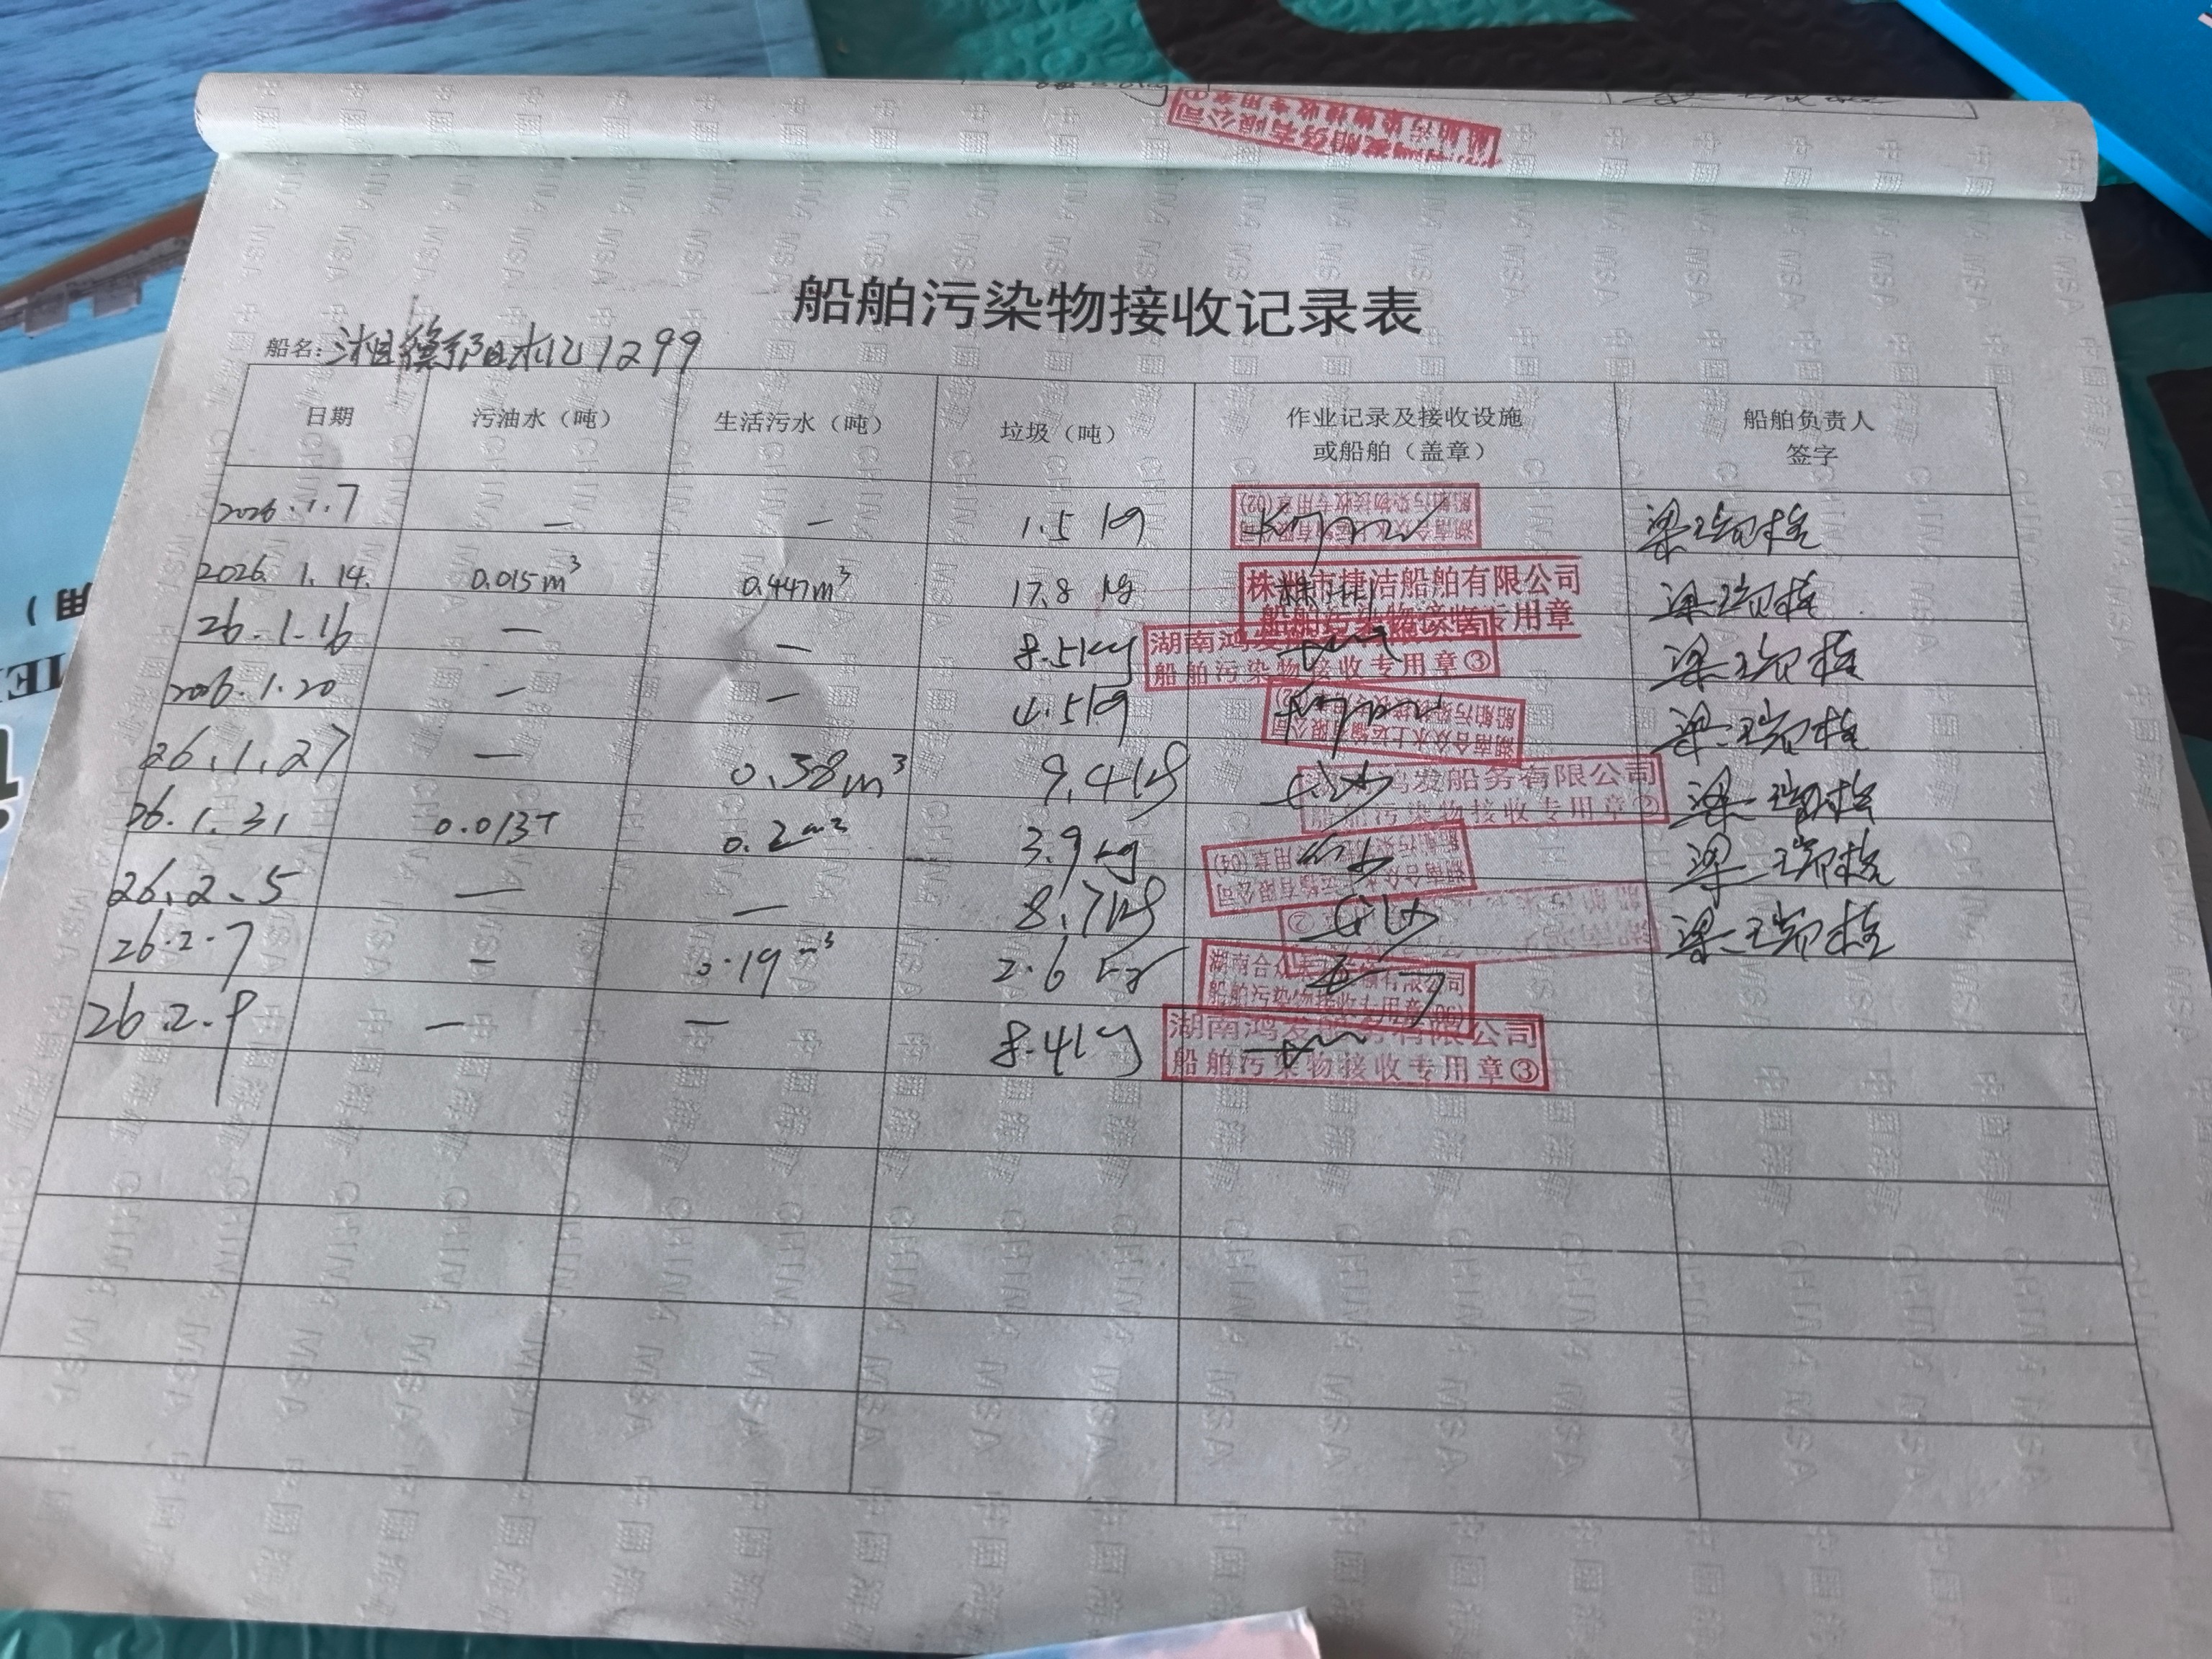 船舶污染物接收记录表
船名: 湘衡阳机1299
日期 污油水（吨） 生活污水（吨） 垃圾（吨） 作业记录及接收设施或船舶（盖章） 船舶负责人签字
2026.1.7 — — 1.5 kg 船舶污染物接收专用章(02) 梁瑞
2026.1.14. 0.015m³ 0.447m³ 17.8 kg 株洲市捷洁船舶有限公司 船舶污染物接收专用章 梁瑞
26.1.16 — — 8.5kg 湖南鸿发 船舶污染物接收专用章③ 梁瑞
2026.1.20 — — 4.5kg 湖南合众水上运输有限公司 船舶污染 梁瑞
26.1.27 — 0.38m³ 9.4kg 鸿发船务有限公司 船舶污染物接收专用章② 梁瑞
26.1.31 0.013T 0.2m³ 3.9kg 湖南合众 运输有限公司 用章(04) 梁瑞
26.2.5 — — 8.7kg ② 梁瑞
26.2.7 — 0.19m³ 2.6kg 湖南合众 有限公司 船舶污染物接收专用章(06)
26.2.9 — — 8.4kg 湖南鸿发船务有限公司 船舶污染物接收专用章③